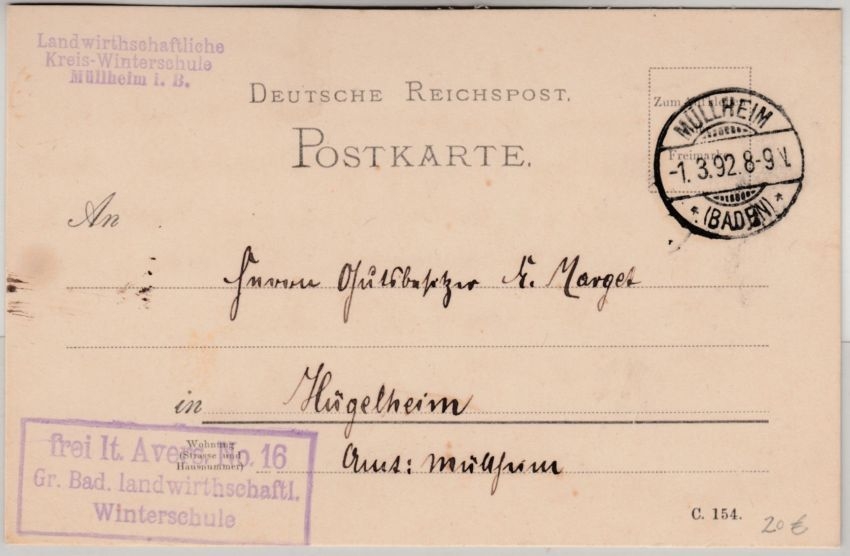 Landwirthschaftliche
Kreis-Winterschule
Müllheim i. B.
DEUTSCHE REICHSPOST.
POSTKARTE.
Zum Aufkleben
Freimarke
MÜLLHEIM
-1.3.92.8-9V.
* (BADEN) *
An
Herrn Gutsbesitzer E. Marget
in Hügelheim
Amt: Müllheim
Wohnung
(Strasse und
Hausnummer)
frei lt. Avers. No. 16
Gr. Bad. landwirthschaftl.
Winterschule
C. 154.
20 €